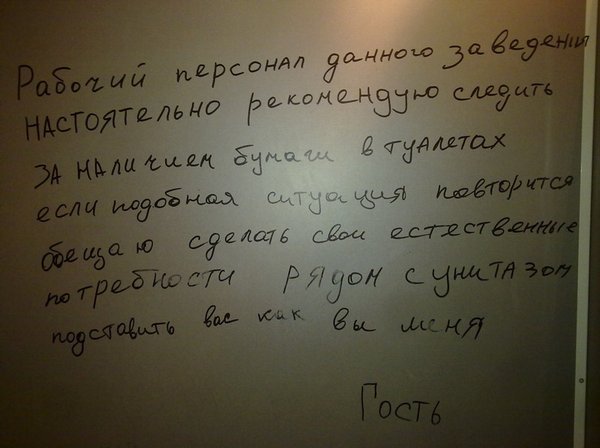 Рабочий персонал данного заведения
НАСТОЯТЕЛЬНО рекомендую следить
ЗА НАЛИЧИЕМ бумаги в ТУАЛЕТАХ
если подобная ситуация повторится
обещаю сделать свои естественные
потребности РЯДОМ С УНИТАЗОМ
подставить вас как вы меня
Гость